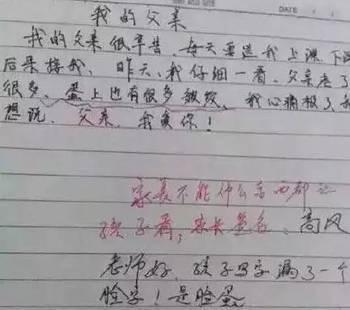 我的父亲
我的父亲很辛苦、每天要送我上课下课
后来接我、昨天、我仔细一看、父亲老了
很多、蛋上也有很多皱纹、我心痛极了、我
想说、父亲、我爱你！
家长不能什么东西都让
孩子看，家长签名、高风
老师好、孩子写字漏了一个
脸字！是脸蛋